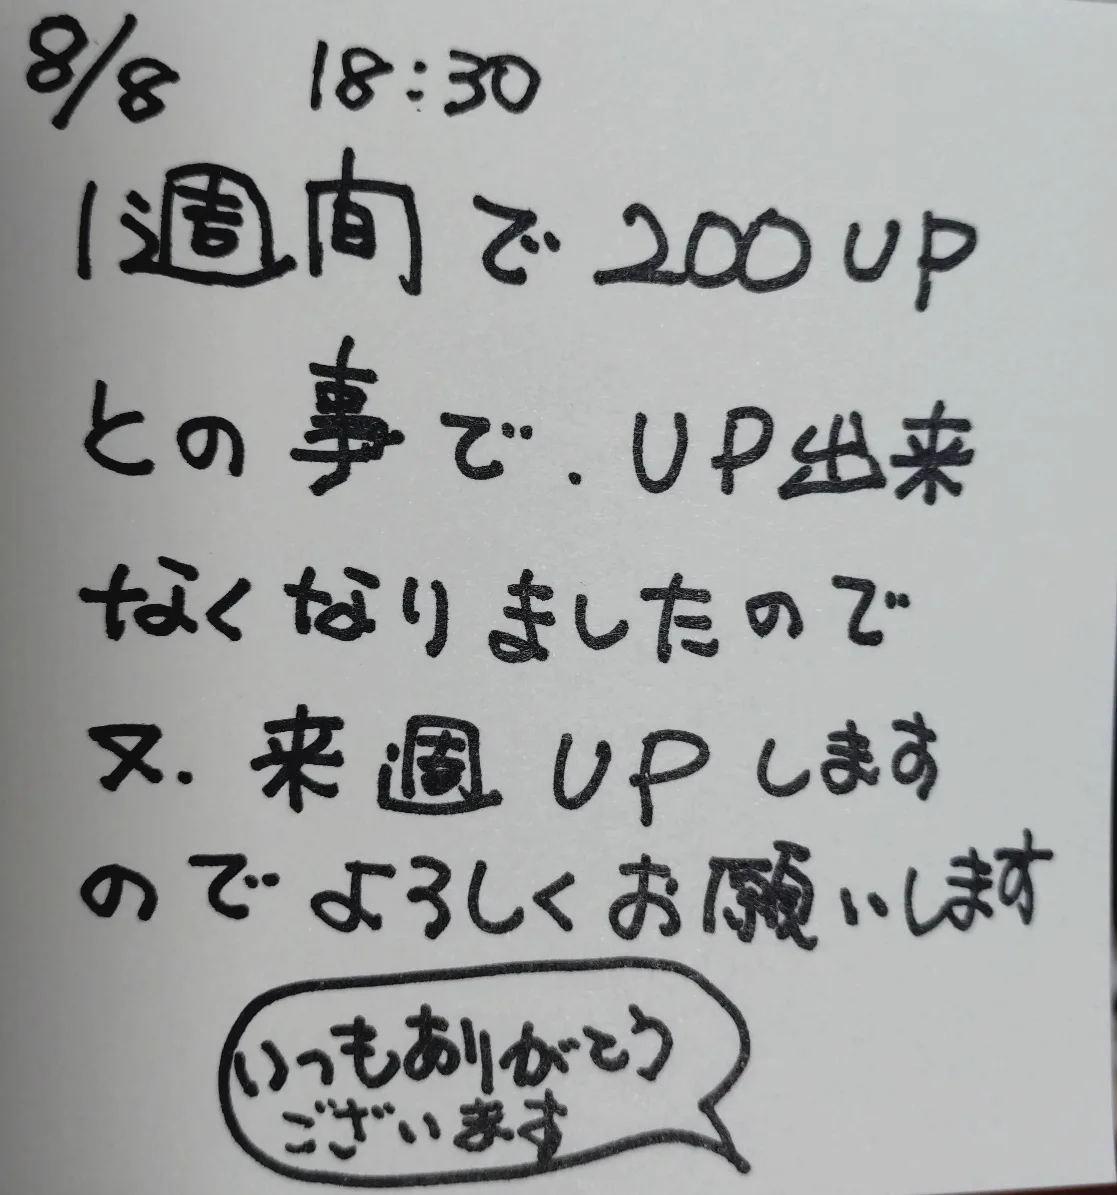 8/8 18:30
1週間で200UP
との事で.UP出来
なくなりましたので
又.来週UPします
のでよろしくお願いします
いつもありがとう
ございます